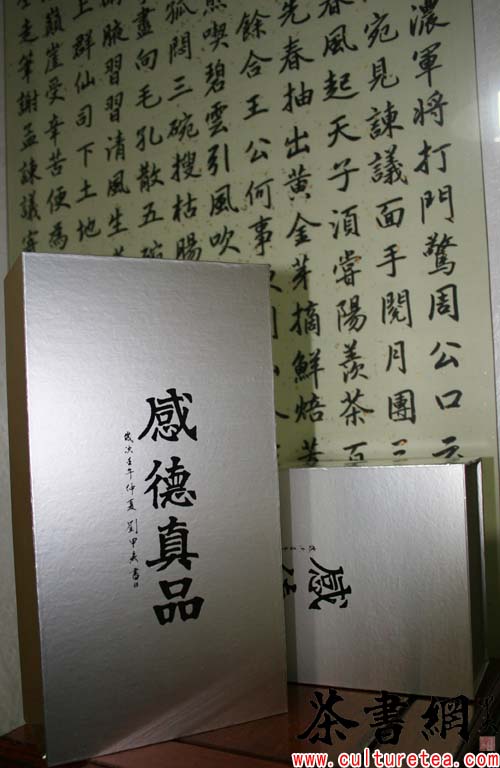 濃軍将打門驚周公口云
宛見諫議面手閱月團三
春風起天子湏嘗陽羨茶百
先春抽出黄金芽摘鮮焙
餘合王公何事
喫碧雲引風吹
孤悶三碗搜枯腸
盡向毛孔散五碗
腋習習清風生
上群仙司下土地
巔崖受辛苦便為
走筆謝孟諫議寄
感德真品
歲次壬午仲夏 劉甲
感
茶書網
www.culturetea.com